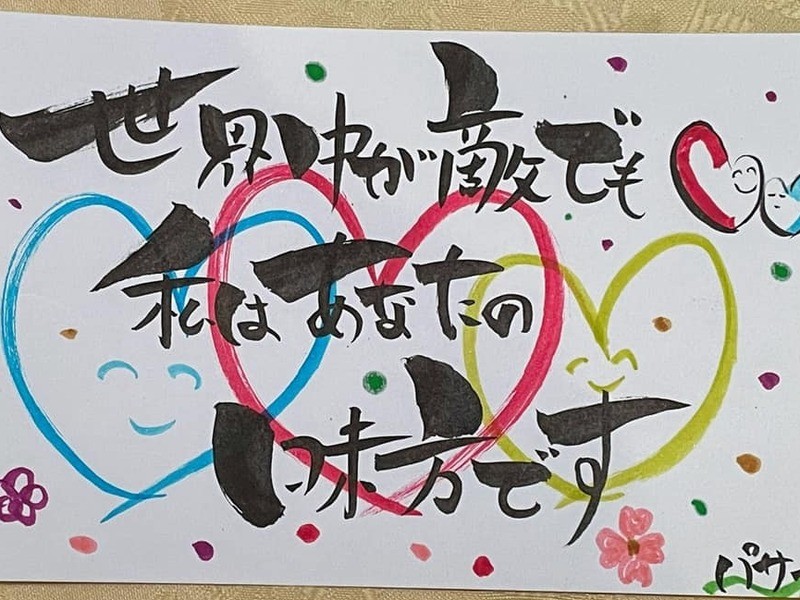 世界中が敵でも
私はあなたの
味方です
パサ